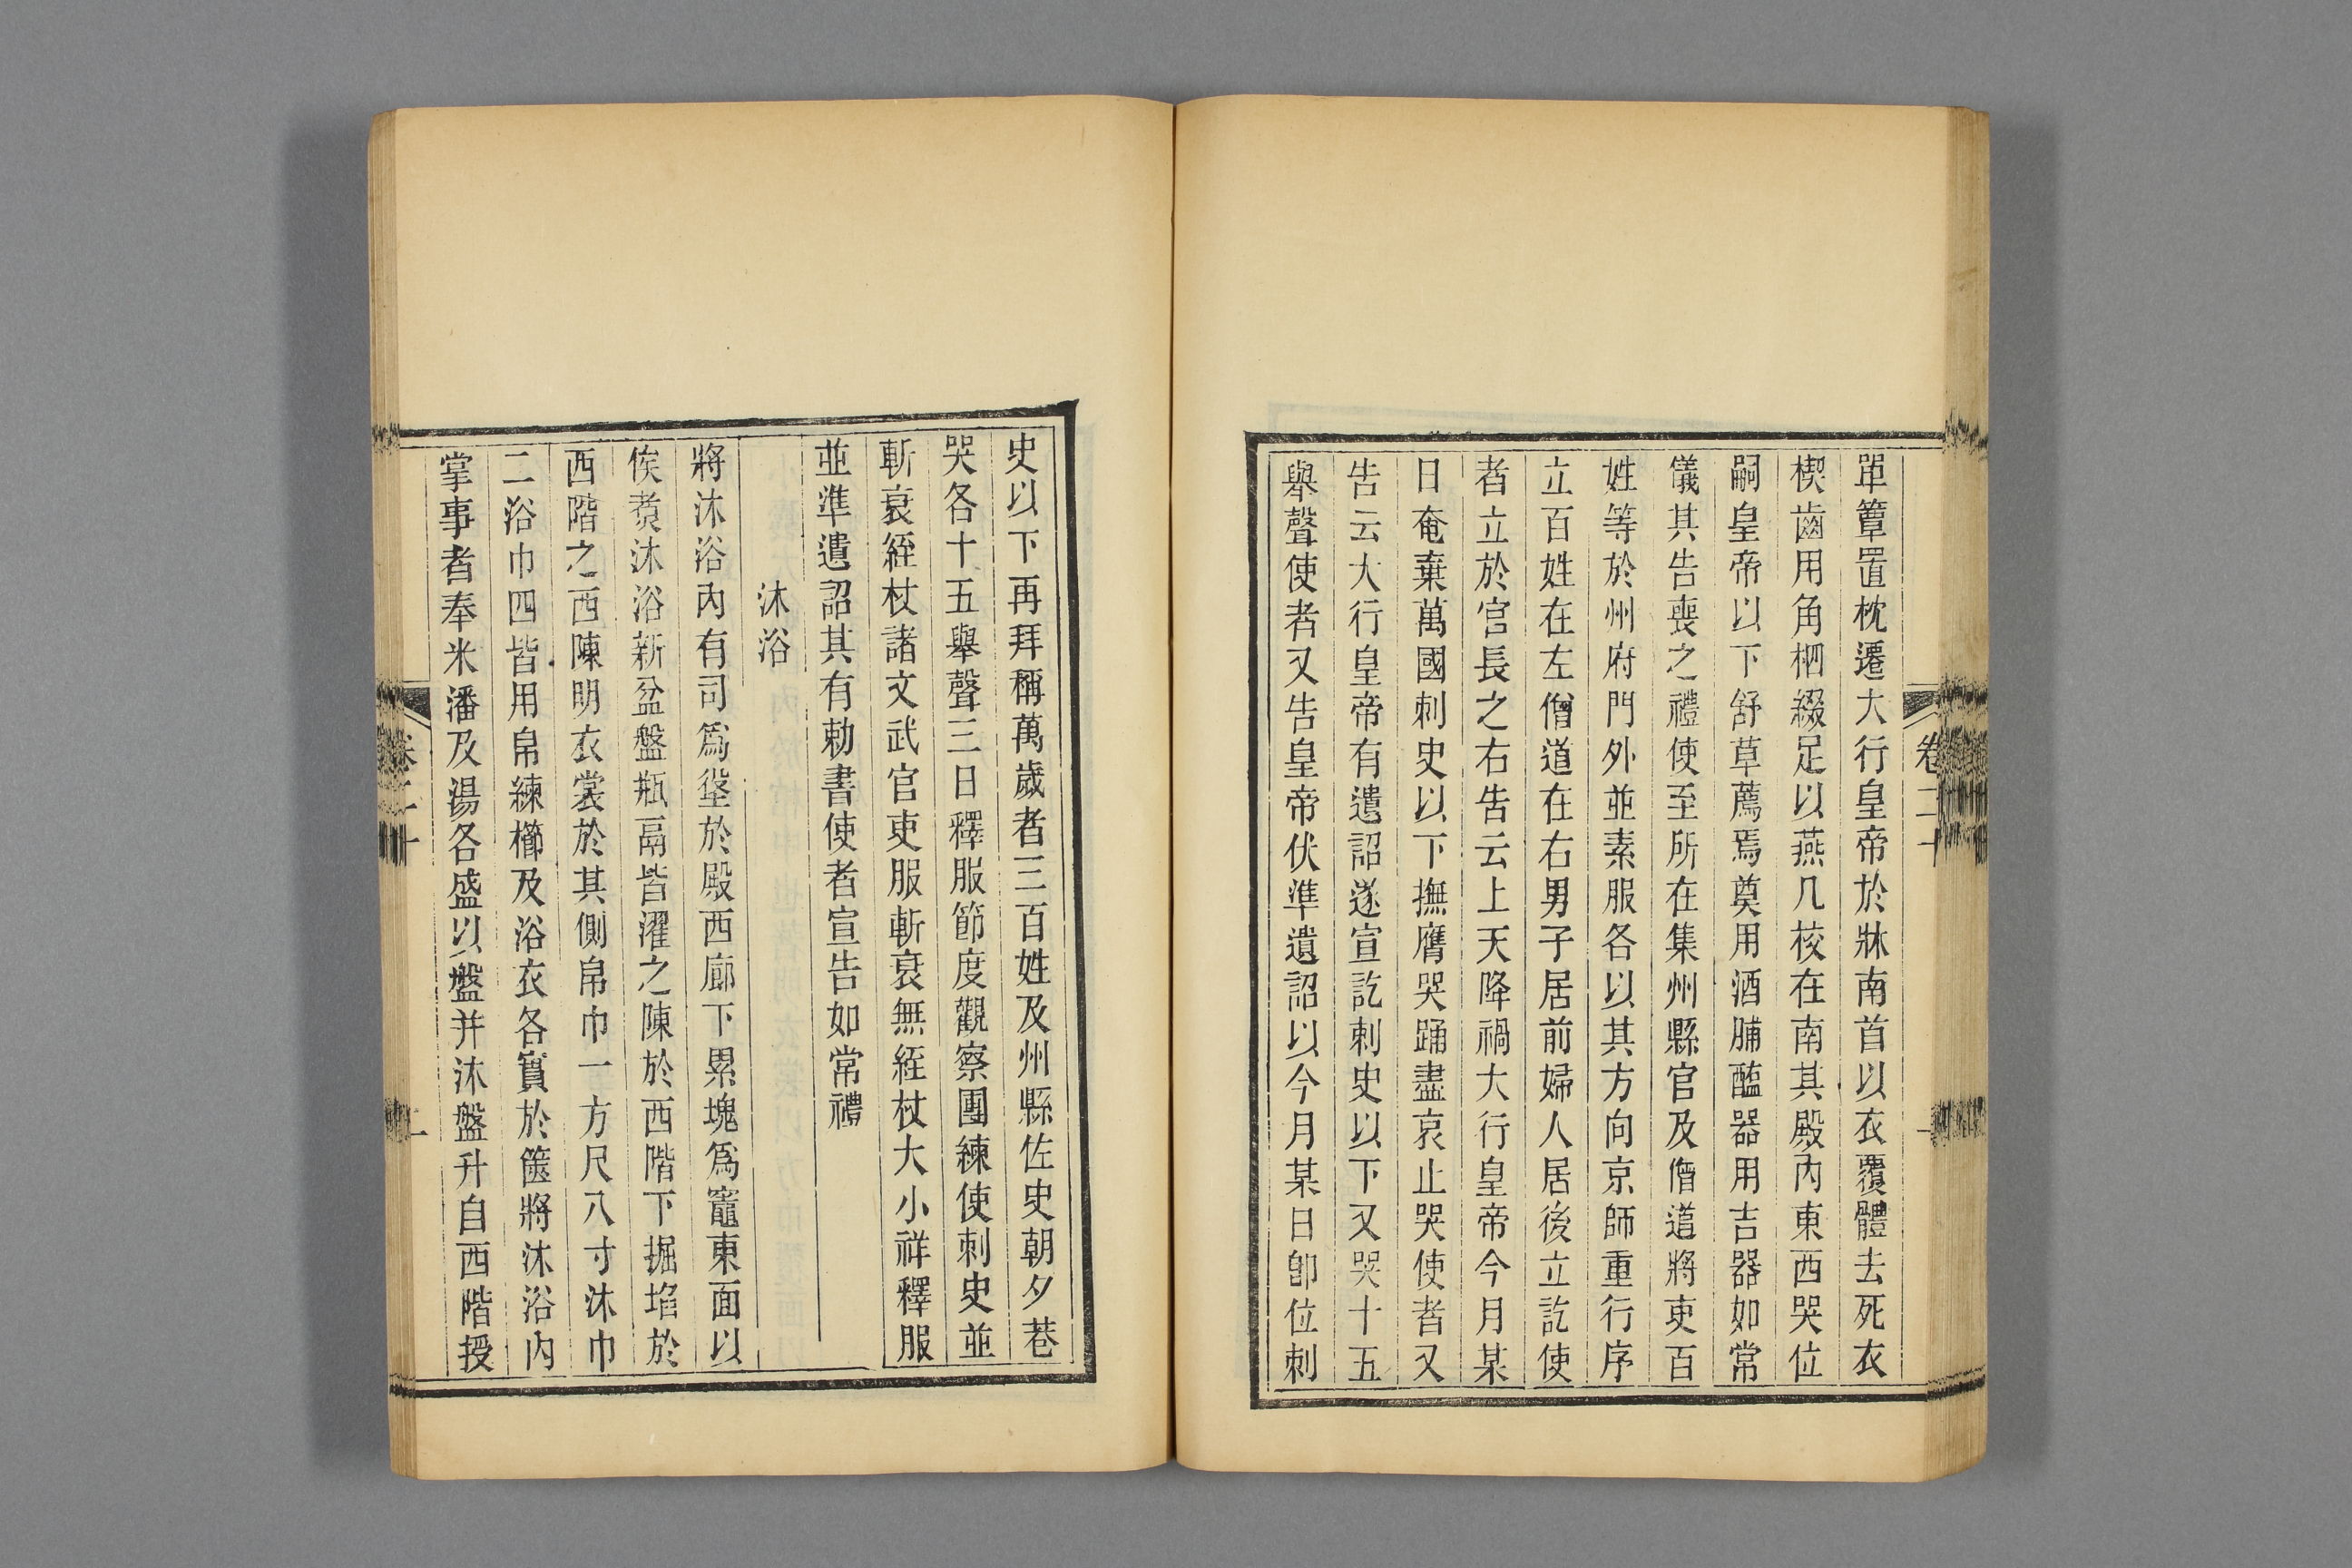 單簟置枕遷大行皇帝於牀南首以衣覆體去死衣
楔齒用角柶綴足以燕几校在南其殿內東西哭位
嗣皇帝以下舒草薦焉奠用酒脯醢器用吉器如常
儀其告喪之禮使至所在集州縣官及僧道將吏百
姓等於州府門外並素服各以其方向京師重行序
立百姓在左僧道在右男子居前婦人居後立訖使
者立於官長之右告云上天降禍大行皇帝今月某
日奄棄萬國刺史以下撫膺哭踊盡哀止哭使者又
告云大行皇帝有遺詔遂宣訖刺史以下又哭十五
舉聲使者又告皇帝伏準遺詔以今月某日卽位刺
卷二十
史以下再拜稱萬歲者三百姓及州縣佐史朝夕巷
哭各十五舉聲三日釋服節度觀察團練使刺史並
斬衰絰杖諸文武官吏服斬衰無絰杖大小祥釋服
並準遺詔其有勅書使者宣告如常禮
沐浴
將沐浴內有司爲垼於殿西廊下累塊爲竈東面以
俟煑沐浴新盆盤瓶鬲皆濯之陳於西階下掘埳於
西階之西陳明衣裳於其側帛巾一方尺八寸沐巾
二浴巾四皆用帛練櫛及浴衣各實於篋將沐浴內
掌事者奉米潘及湯各盛以盤并沐盤升自西階授
卷二十